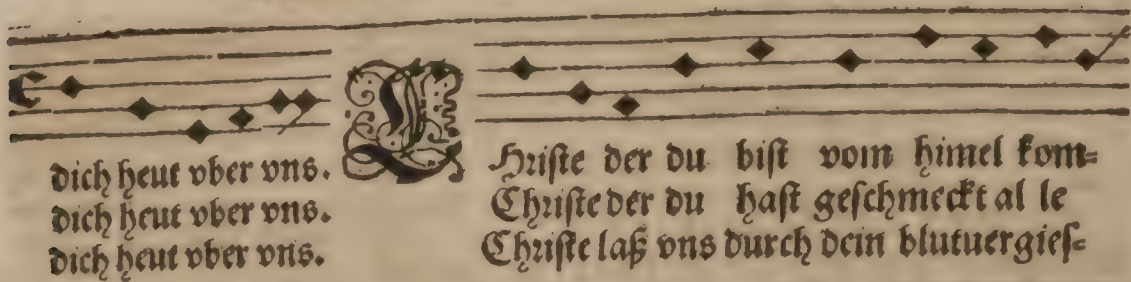 dich heut vber vns.
dich heut vber vns.
dich heut vber vns.
CHriste der du bist vom himel kom=
Christe der du hast geschmeckt al le
Christe laß vns durch dein blutuergies=